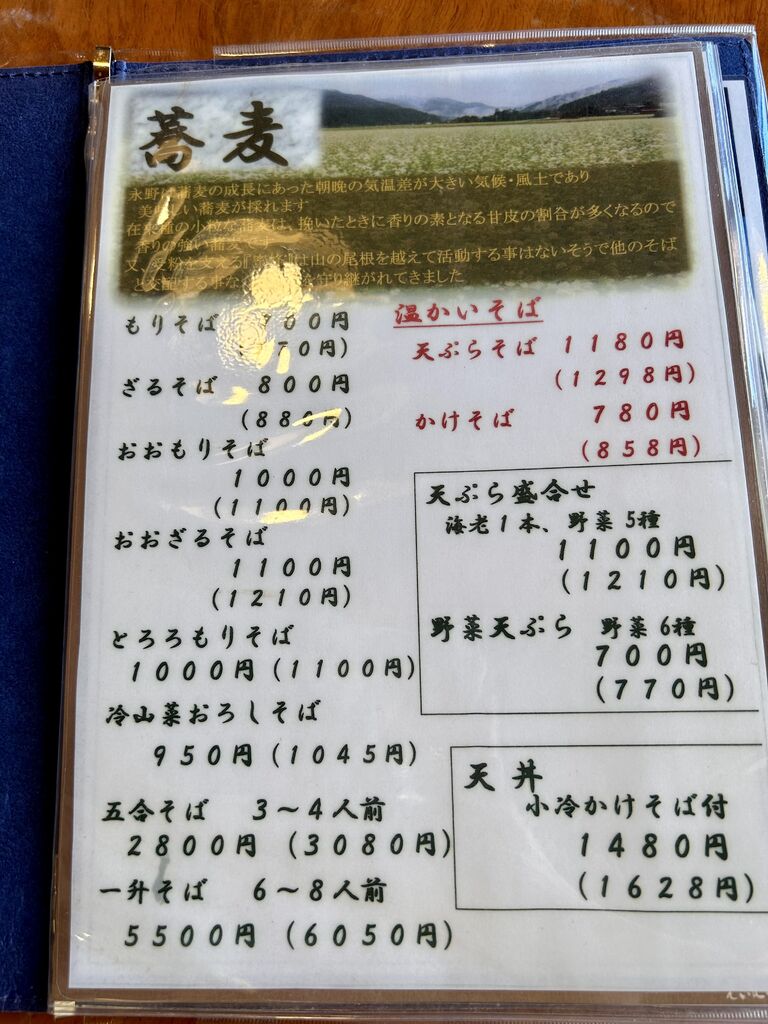 蕎麦
永野は蕎麦の成長にあった朝晩の気温差が大きい気候・風土であり
美しい蕎麦が採れます
在来種の小粒な蕎麦は、挽いたときに香りの素となる甘皮の割合が多くなるので
香りの強い蕎麦です
又、受粉を支える『蜜蜂』は山の尾根を越えて活動する事はないそうで他のそば
と交配する事なく 守り継がれてきました
もりそば 700円
(770円)
ざるそば 800円
(880円)
おおもりそば
1000円
(1100円)
おおざるそば
1100円
(1210円)
とろろもりそば
1000円(1100円)
冷山菜おろしそば
950円(1045円)
五合そば 3～4人前
2800円 (3080円)
一升そば 6～8人前
5500円 (6050円)
温かいそば
天ぷらそば 1180円
(1298円)
かけそば 780円
(858円)
天ぷら盛合せ
海老1本、野菜5種
1100円
(1210円)
野菜天ぷら 野菜6種
700円
(770円)
天丼
小冷かけそば付
1480円
(1628円)